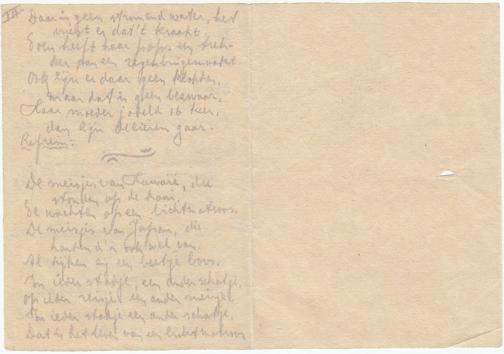 III Daar is geen stromend water, het
vriest er dat 't kraakt
Toen heeft haar papa een trek-
ker van een regenbuigemaakt.
Ook zijn er daar geen klokken,
maar dat is geen bezwaar,
Haar moeder jodeld 16 keer,
dan zijn de eieren gaar.
Refrein:
De meisjes van Hawaii, die
stonden op de kaai,
Ze wachten op een lichtmatroos.
De meisjes van Japan, die
houden d'r ook wel van.
Al zijn zij een beetje boos.
In ieder stadje, een ander schatje,
op ieder reisje een ander meisje
In ieder stadje een ander schatje.
Dat is het leven van een lichtmatroos